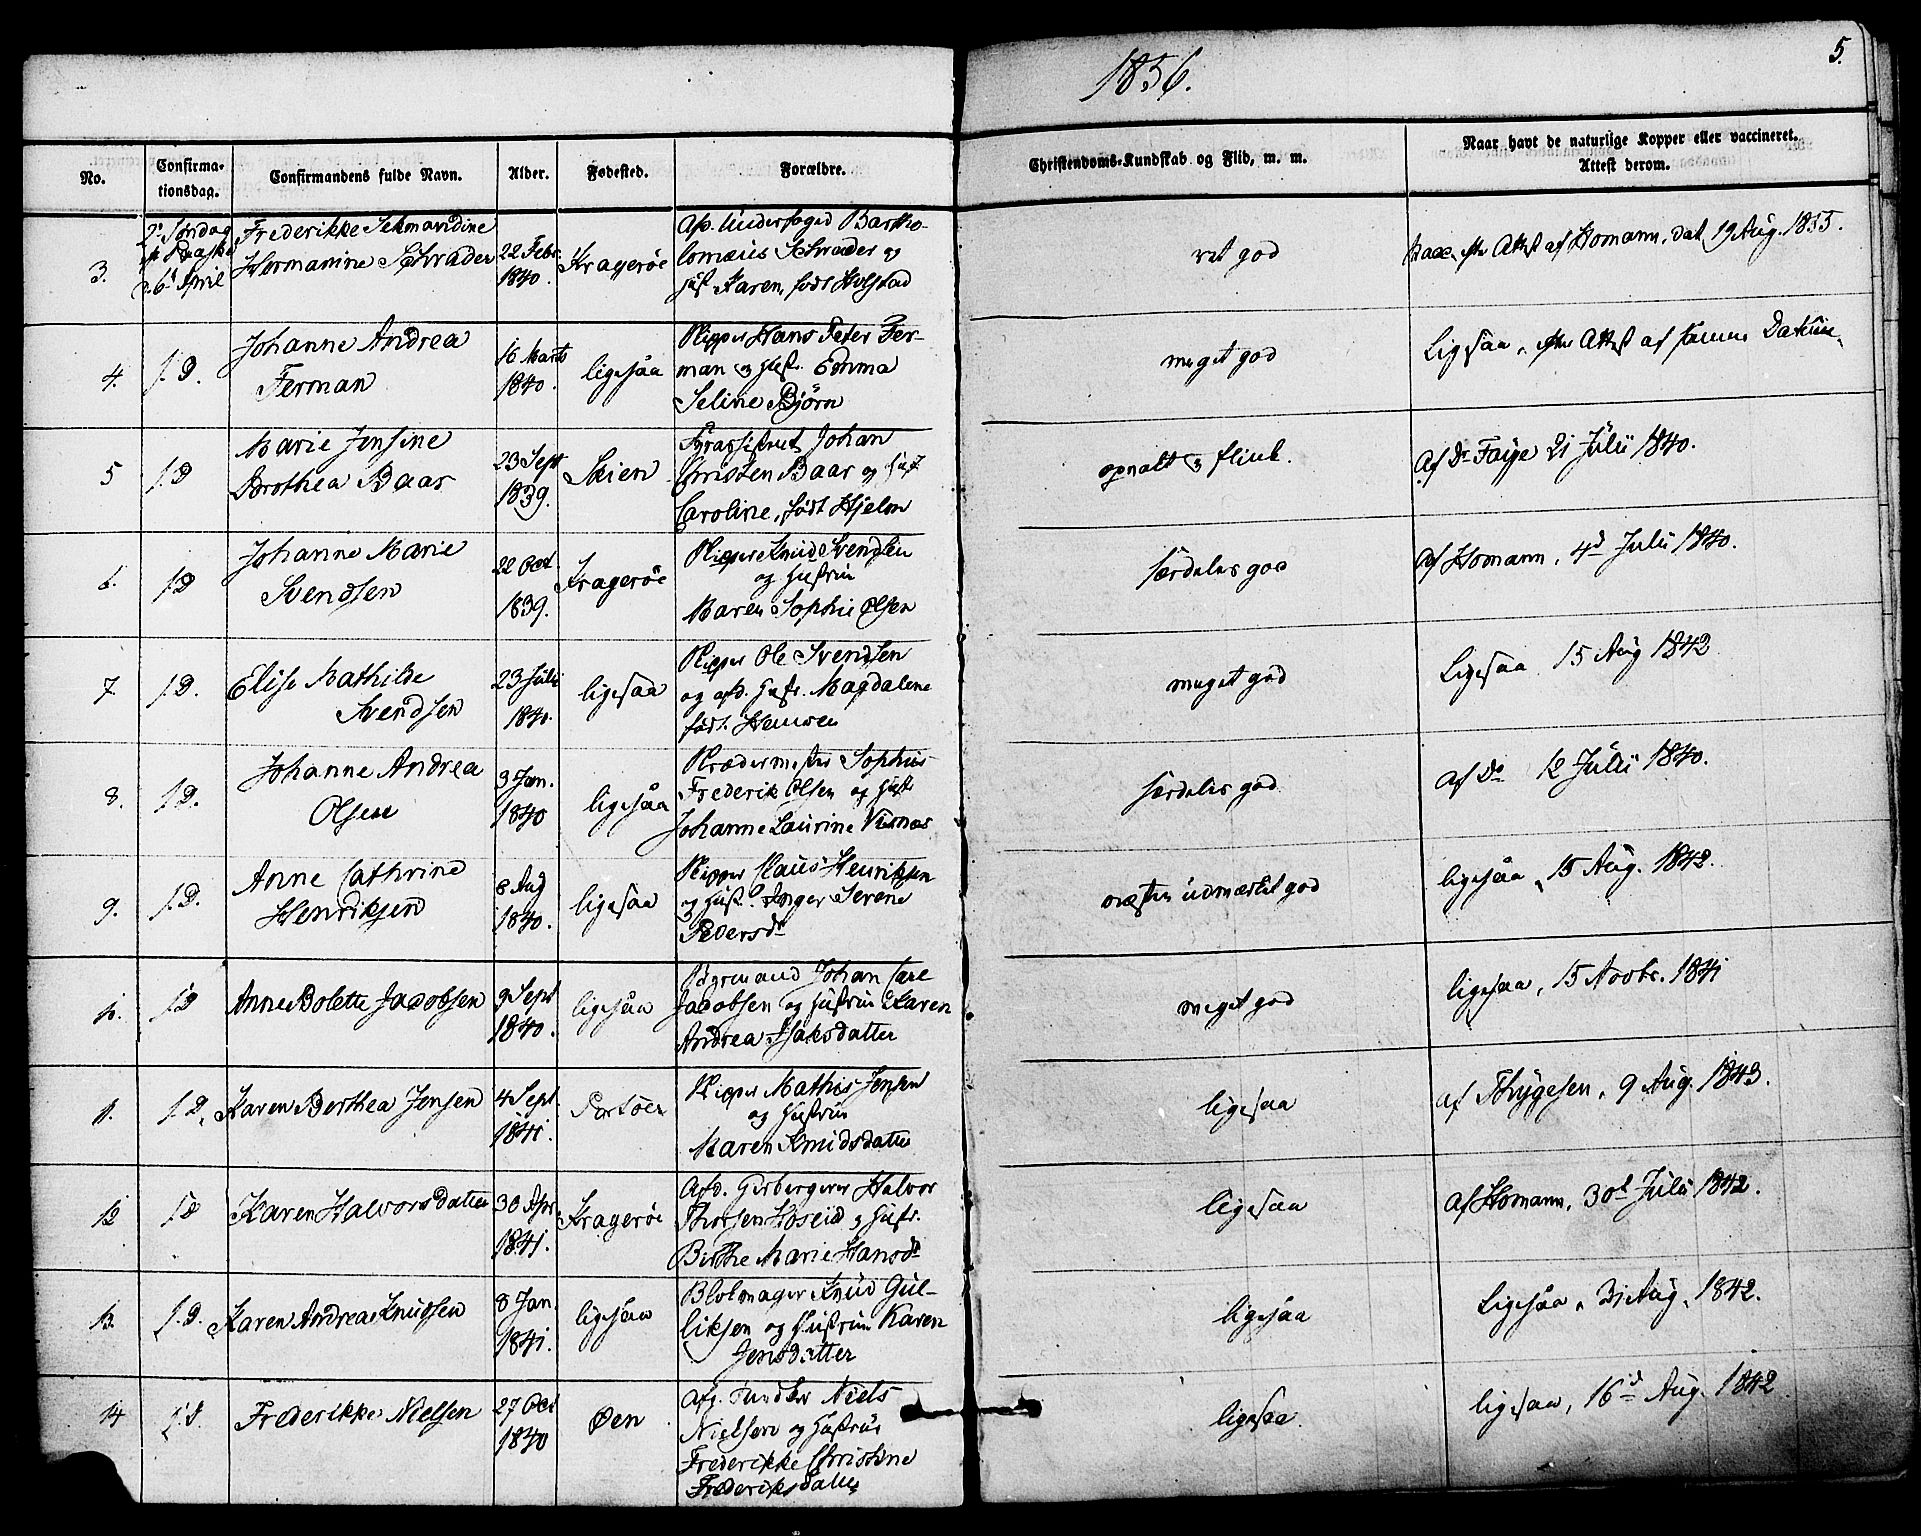 1856.
5.
No.
Confirma-
tionsdag.
Confirmandens fulde Navn.
Alder.
Fødested.
Forældre.
Christendoms-Kundskab og Flid, m. m.
Naar havt de naturlige Kopper eller vaccineret.
Attest derom.
3.
Søndag
Paaske
6 April
Frederikke
Hermanine Schrader
22 Febr
1840.
Kragerøe
Bartho-
lomæus Schrader og
Karen, født Holstad
ret god
Vacc. Attest af Homann, dat 19 Aug. 1855.
4.
1.D.
Johanne Andrea
Ferman
16 Marts
1840.
ligesaa
Skipper Hans Peter Fer-
man og Hust. Emma
Seline Bjørn
meget god
Ligesaa, Attest af samme Datum
5
1.D
Marie Jensine
Dorothea Baar
23 Sept
1839.
Skien
Johan
Christen Baar og Hust
Caroline, født Hjelm
opvakt og flink.
Af Dr Faye 21 Julii 1840.
6.
1.D
Johanne Marie
Svendsen
22 Oct
1839.
Kragerøe
Skipper Knud Svendsen
og Hustru
Maren Sophie Olsen
særdeles god
af Homann, 4d Julii 1840.
7.
1.D.
Elise Mathilde
Svendsen
23 Juli
1840.
ligesaa
Skipper Ole Svendsen
og afd. Hustr. Magdalene
født
meget god
Ligesaa 15 Aug 1842
8.
1.D.
Johanne Andrea
Olsen
3 Jan.
1840
ligesaa
Sophius
Frederik Olsen og Hustr
Johanne Laurine
særdeles god
Af Do 12 Julii 1840.
9.
1.D.
Anne Cathrine
Henriksen
8 Aug
1840.
ligesaa
Skipper Claus Henriksen
og Hust. Inger Serene
Pedersdr
næsten udmærket god
ligesaa, 15 Aug. 1842.
1.D
Anne Bolette Jacobsen
9 Sept
1840.
ligesaa
Johan Carl
Jacobsen og Hustru Karen
Andrea Isaksdatter
meget god
ligesaa, 15 Novbr. 1841
11.
1.D.
Karen Berthea Jensen
4 Sept
1841.
Portøer
Skipper Mathis Jensen
og Hustru
Maren Knudsdatter
ligesaa
af Thygesen, 9 Aug. 1843.
12
1.D
Karen Halvorsdatter
30 Apr.
1841.
Kragerøe
Afd. Halvor
Thorsen Hoseid og Hustr.
Birthe Marie Hansdr
ligesaa
af Homann, 30d Julii 1842.
13.
1.D.
Karen Andrea Knudsen
8 Jan.
1841.
ligesaa
Blokmager Knud Gul-
liksen og Hustru Karen
Jensdatter
ligesaa
Ligesaa, 31 Aug. 1842.
14
1.D.
Frederikke Nielsen
27 Oct
1840
Øen
Niels
Nielsen og Hustru
Frederikke Christine
Frederiksdatter
ligesaa.
ligesaa, 16d Aug. 1842